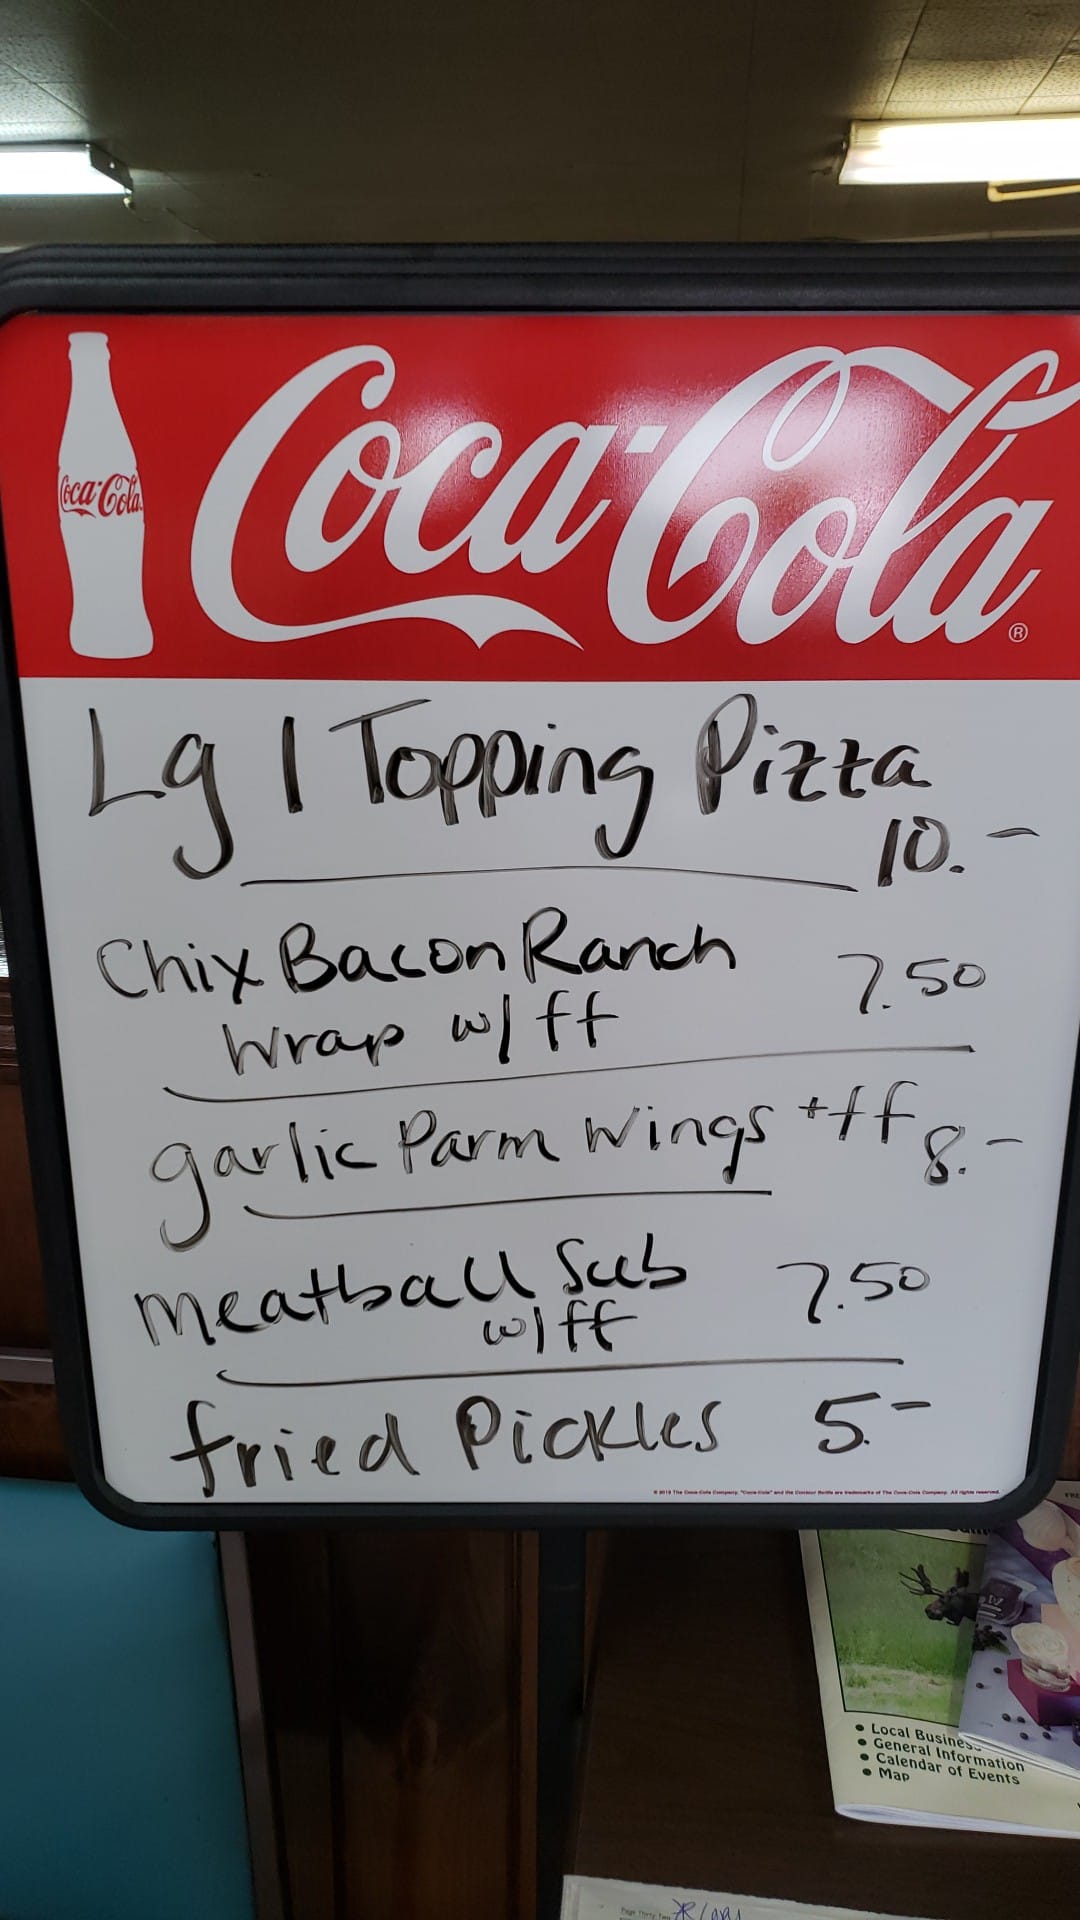 Coca-Cola
Coca-Cola®
Lg 1 Topping Pizza
10.-
Chix Bacon Ranch 7.50
Wrap w/ ff
garlic Parm Wings + ff 8.-
Meatball Sub 7.50
w/ ff
fried Pickles 5.-
© 2013 The Coca-Cola Company. "Coca-Cola" and the Contour Bottle are trademarks of The Coca-Cola Company. All rights reserved.
• Local Business
• General Information
• Calendar of Events
• Map
Page Thirty Two